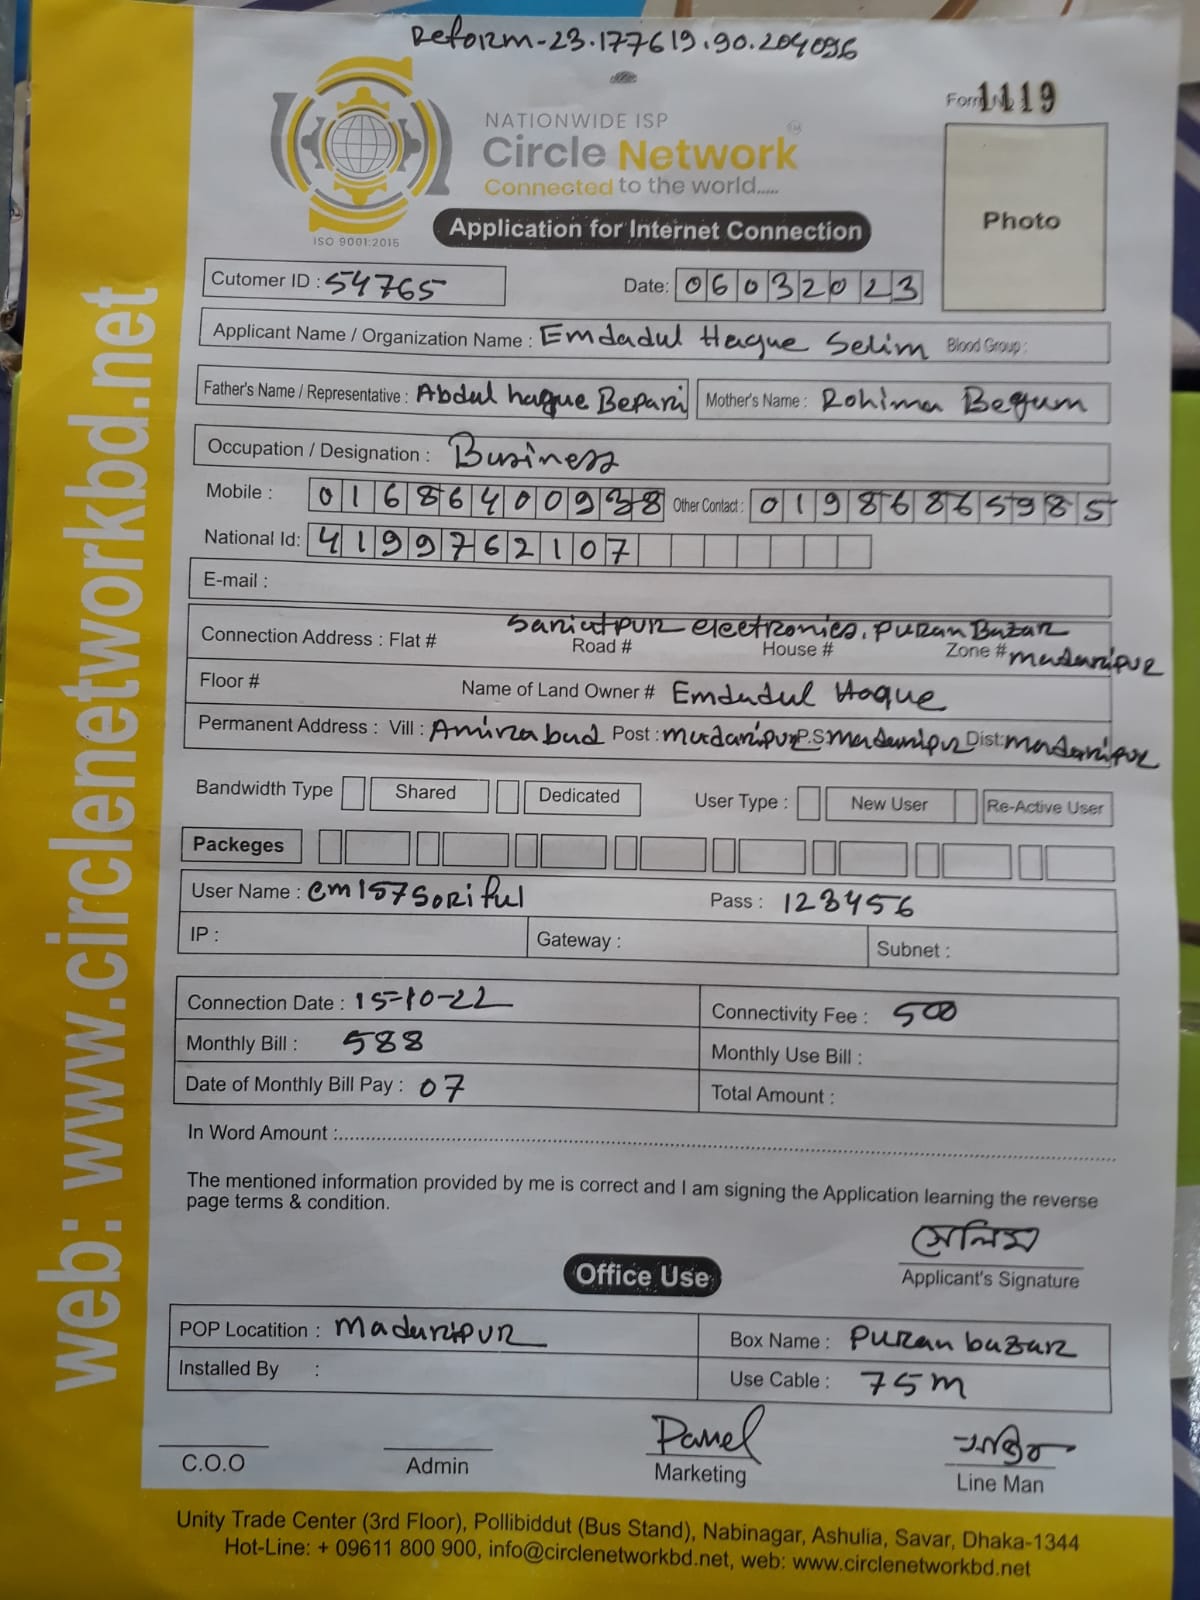 Reform-23.177619.90.204096
Form No 1119
NATIONWIDE ISP
Circle Network
Connected to the world.....
ISO 9001:2015
Application for Internet Connection
Photo
Cutomer ID : 54765 Date: 06032023
Applicant Name / Organization Name : Emdadul Haque Selim Blood Group :
Father's Name / Representative : Abdul haque Bepari Mother's Name : Rohima Begum
Occupation / Designation : Business
Mobile : 01686400938 Other Contact : 01986865985
National Id: 4199762107
E-mail :
Sariatpur electronics, Puran Bazar
Connection Address : Flat # Road # House # Zone # madaripur
Floor # Name of Land Owner # Emdadul Haque
Permanent Address : Vill : Amirabad Post : madaripur P.S madaripur Dist: madaripur
Bandwidth Type Shared Dedicated User Type : New User Re-Active User
Packeges
User Name : cm157soriful Pass : 123456
IP : Gateway : Subnet :
Connection Date : 15-10-22 Connectivity Fee : 500
Monthly Bill : 588 Monthly Use Bill :
Date of Monthly Bill Pay : 07 Total Amount :
In Word Amount :
The mentioned information provided by me is correct and I am signing the Application learning the reverse
page terms & condition.
সেলিম
Applicant's Signature
Office Use
POP Locatition : Madaripur Box Name : Puran bazar
Installed By : Use Cable : 75m
C.O.O Admin Marketing Line Man
Unity Trade Center (3rd Floor), Pollibiddut (Bus Stand), Nabinagar, Ashulia, Savar, Dhaka-1344
Hot-Line: + 09611 800 900, info@circlenetworkbd.net, web: www.circlenetworkbd.net
web: www.circlenetworkbd.net